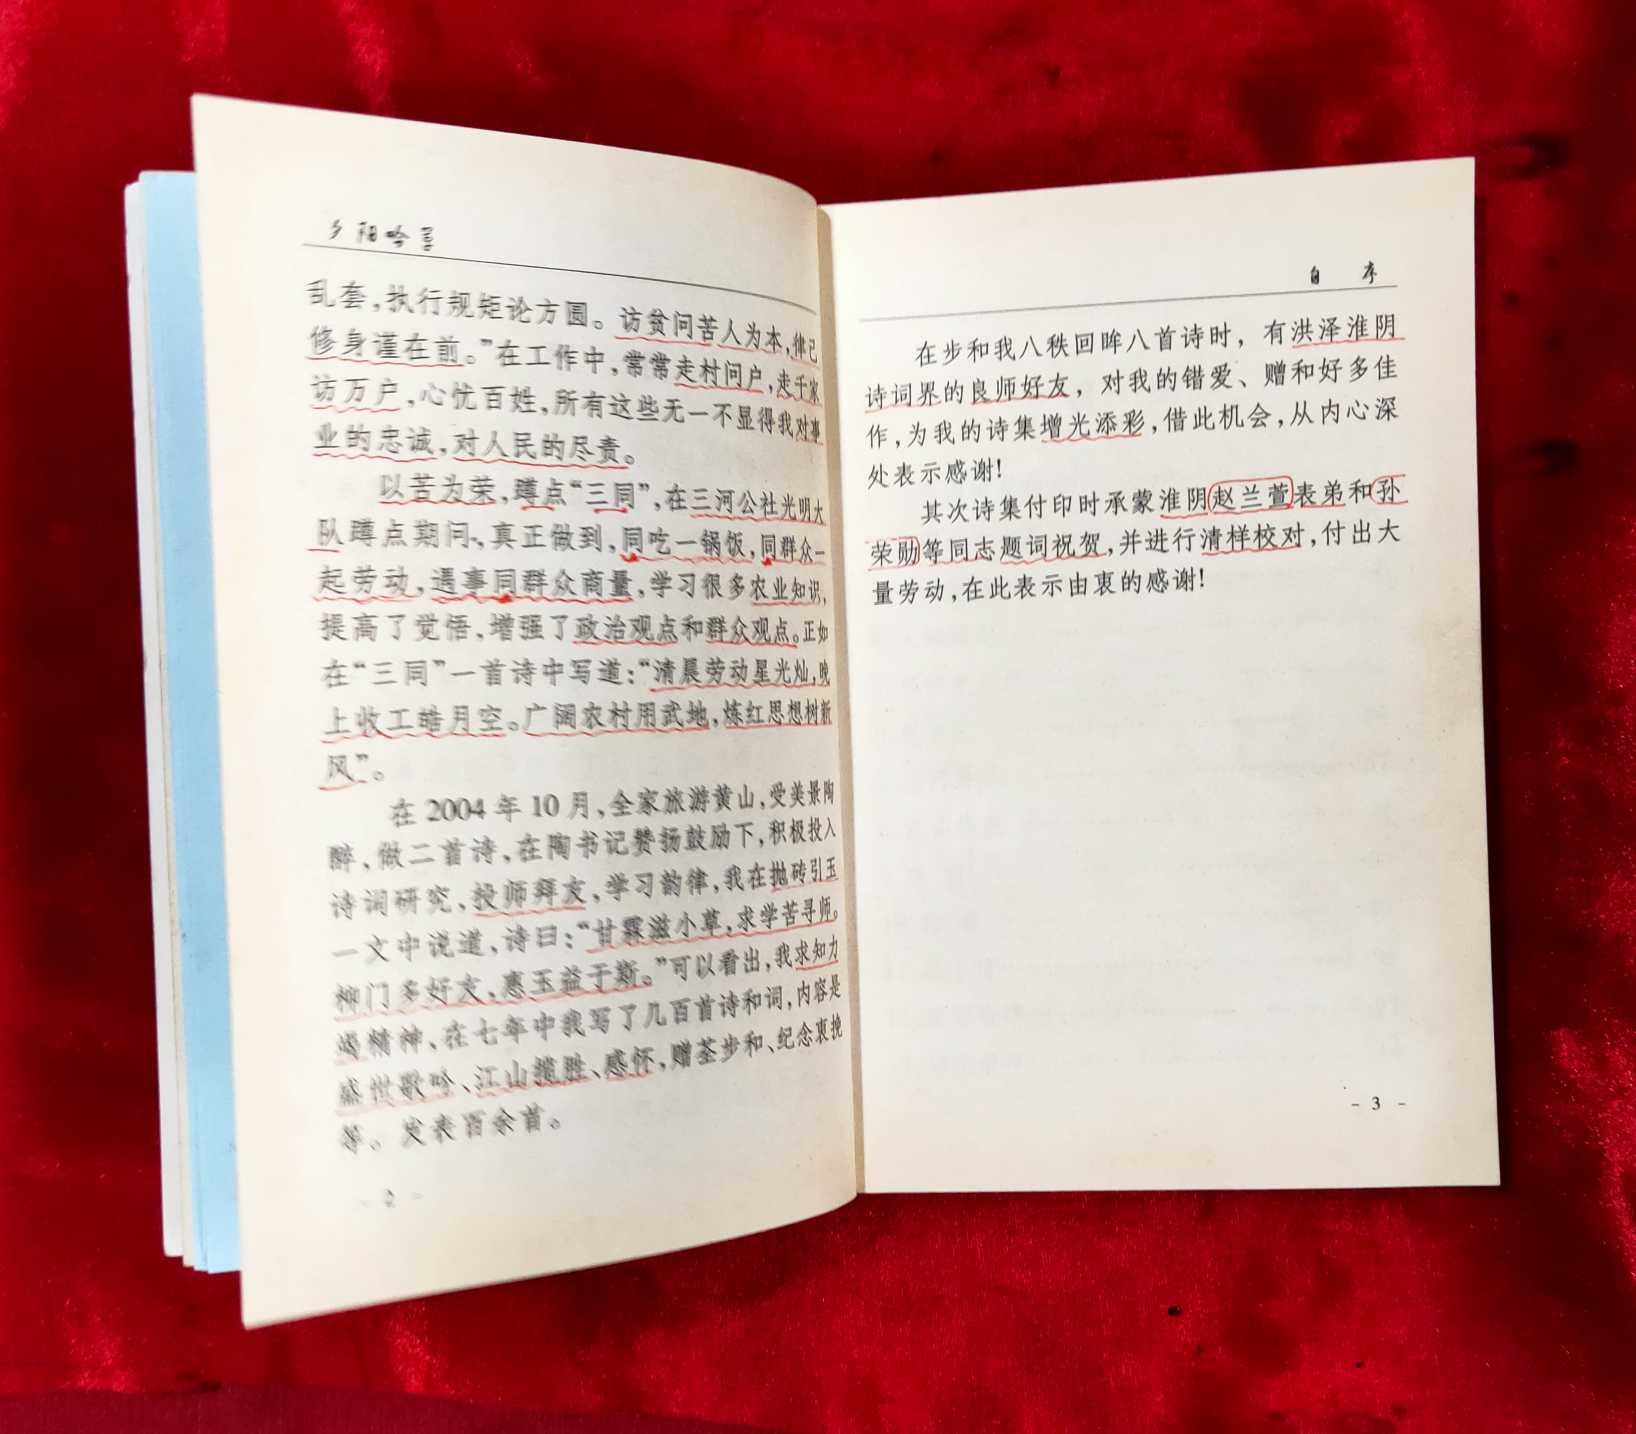 夕阳吟草
乱套，执行规矩论方圆。访贫问苦人为本，律己
修身谨在前。”在工作中，常常走村问户，走千家
访万户，心忧百姓，所有这些无一不显得我对事
业的忠诚，对人民的尽责。
以苦为荣，蹲点“三同”，在三河公社光明大
队蹲点期间、真正做到，同吃一锅饭，同群众一
起劳动，遇事同群众商量，学习很多农业知识，
提高了觉悟，增强了政治观点和群众观点。正如
在“三同”一首诗中写道：“清晨劳动星光灿，晚
上收工皓月空。广阔农村用武地，炼红思想树新
风”。
在2004年10月，全家旅游黄山，受美景陶
醉、做二首诗、在陶书记赞扬鼓励下，积极投入
诗词研究、投师拜友，学习韵律，我在抛砖引玉
一文中说道，诗曰：“甘霖滋小草，求学苦寻师。
柳门多好友，惠玉益于斯。”可以看出，我求知力
竭精神、在七年中我写了几百首诗和词，内容是
盛世歌吟、江山揽胜、感怀，赠荃步和、纪念衷挽
等。发表百余首。
- 2 -
自 序
在步和我八秩回眸八首诗时，有洪泽淮阴
诗词界的良师好友，对我的错爱、赠和好多佳
作，为我的诗集增光添彩，借此机会，从内心深
处表示感谢！
其次诗集付印时承蒙淮阴赵兰萱表弟和孙
荣勋等同志题词祝贺，并进行清样校对，付出大
量劳动，在此表示由衷的感谢！
- 3 -